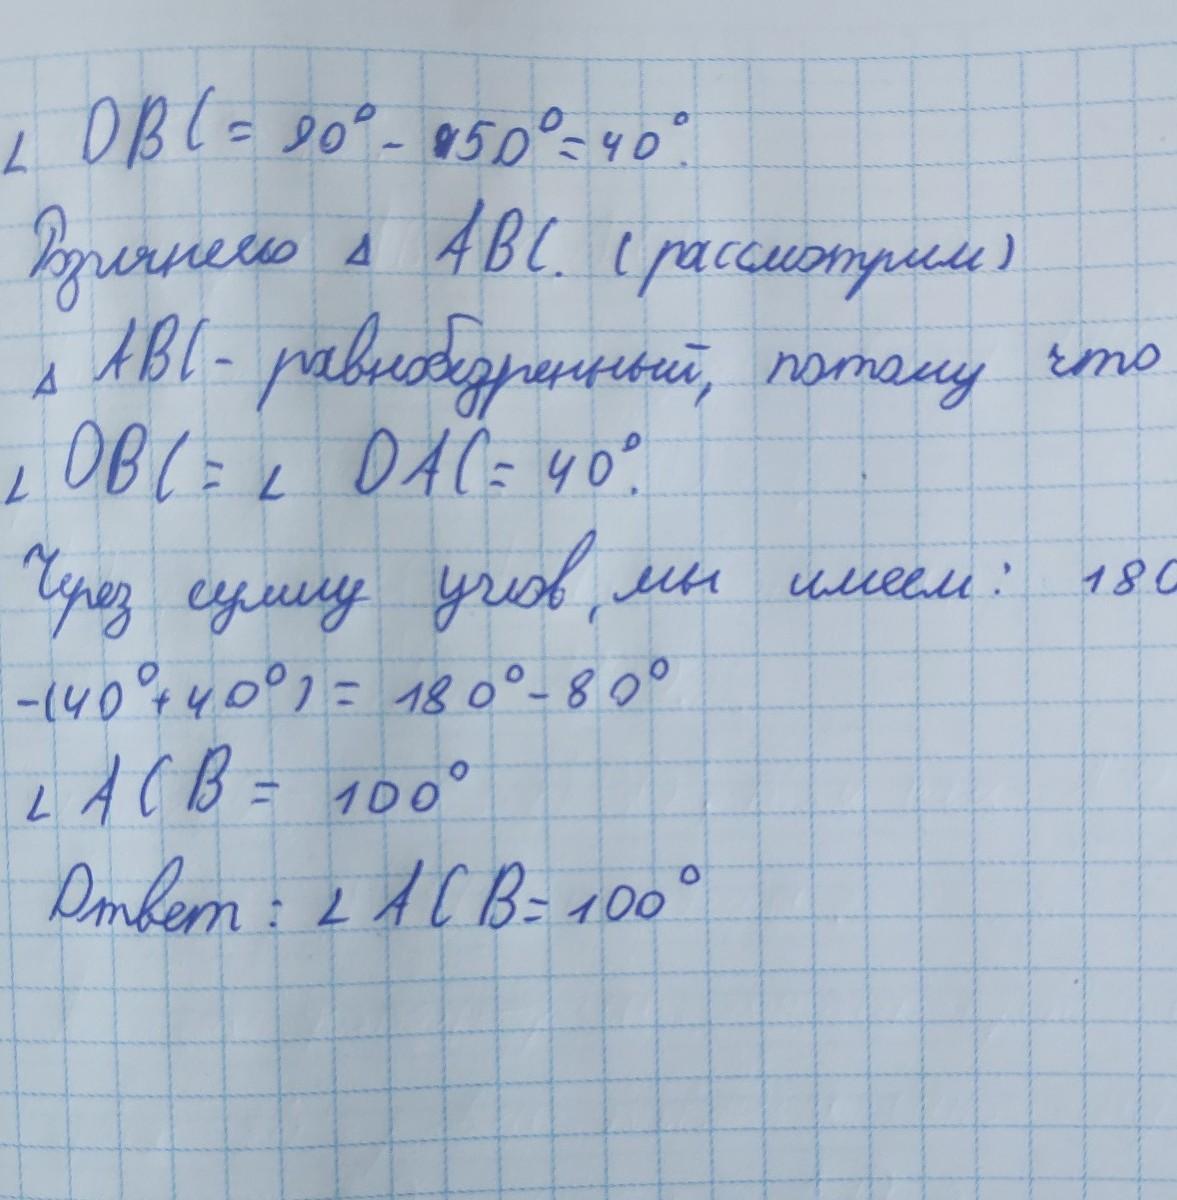 ∠ OBC = 90° - 50° = 40°.
Розглянемо Δ ABC. (рассмотрим)
Δ ABC - равнобедренный, потому что
∠ OBC = ∠ OAC = 40°.
Через сумму углов, мы имеем: 180
-(40° + 40°) = 180° - 80°
∠ ACB = 100°
Ответ: ∠ ACB = 100°